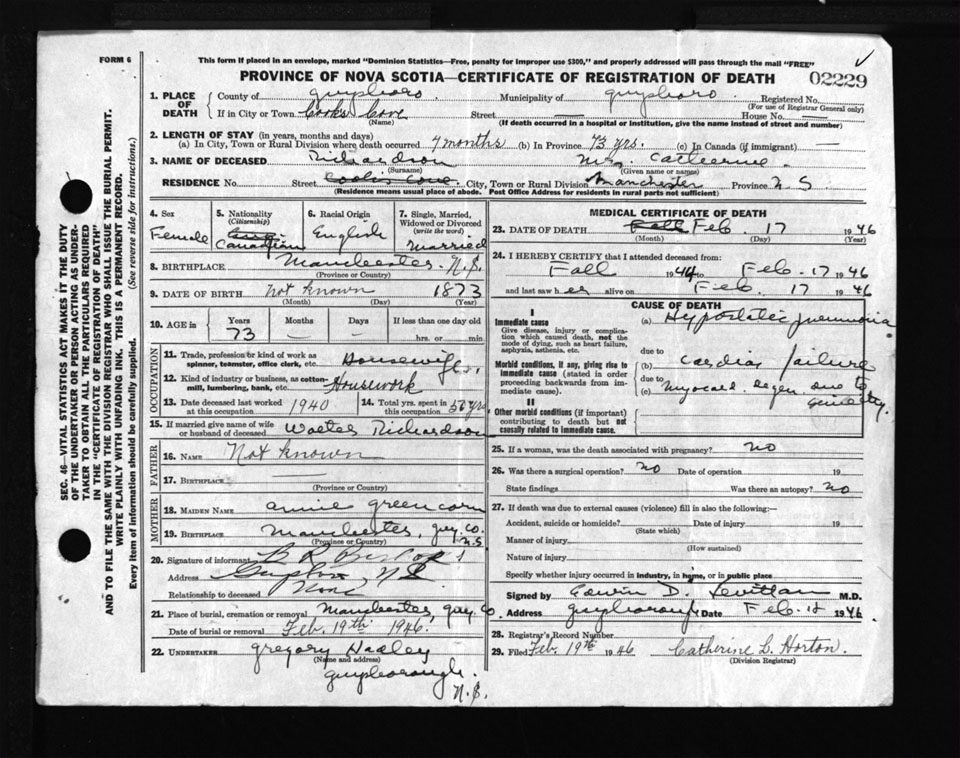 FORM 6
This form if placed in an envelope, marked "Dominion Statistics—Free, penalty for improper use $300," and properly addressed will pass through the mail "FREE"
PROVINCE OF NOVA SCOTIA—CERTIFICATE OF REGISTRATION OF DEATH
02229
1. PLACE OF DEATH County of Guysboro Municipality of Guysboro Registered No.
(For use of Registrar General only)
If in City or Town Cooks Cove Street — House No. —
(Name) (If death occurred in a hospital or institution, give the name instead of street and number)
2. LENGTH OF STAY (in years, months and days)
(a) In City, Town or Rural Division where death occurred 4 months (b) In Province 73 yrs. (c) In Canada (if immigrant) —
3. NAME OF DECEASED Richardson Mrs. Catherine
(Surname) (Given name or names)
RESIDENCE No. Street Cooks Cove City, Town or Rural Division Manchester Province N S
(Residence means usual place of abode. Post Office Address for residents in rural parts not sufficient)
4. Sex Female
5. Nationality (Citizenship) Canadian
6. Racial Origin English
7. Single, Married, Widowed or Divorced (write the word) Married
8. BIRTHPLACE Manchester, N.S.
(Province or Country)
9. DATE OF BIRTH Not known 1873
(Month) (Day) (Year)
10. AGE in Years 73 Months — Days If less than one day old
hrs. or min.
OCCUPATION
11. Trade, profession or kind of work as spinner, teamster, office clerk, etc. Housewife
12. Kind of industry or business, as cotton-mill, lumbering, bank, etc. Housework
13. Date deceased last worked at this occupation 1940
14. Total yrs. spent in this occupation 50 yrs
15. If married give name of wife or husband of deceased Walter Richardson
FATHER
16. NAME Not known
17. BIRTHPLACE —
(Province or Country)
MOTHER
18. MAIDEN NAME Annie Greencorn
19. BIRTHPLACE Manchester, Guy. Co. N.S
(Province or Country)
20. Signature of informant B R
Address Guysboro N S
Relationship to deceased None
21. Place of burial, cremation or removal Manchester, Guy. Co.
Date of burial or removal Feb. 19th 1946.
22. UNDERTAKER Gregory Hadley
(Name and address)
Guysborough.
N.S.
MEDICAL CERTIFICATE OF DEATH
23. DATE OF DEATH Fall Feb. 17 1946
(Month) (Day) (Year)
24. I HEREBY CERTIFY that I attended deceased from:
Fall 1944 to Feb. 17 1946
and last saw her alive on Feb. 17 1946
CAUSE OF DEATH
I
Immediate cause
Give disease, injury or complication which caused death, not the mode of dying, such as heart failure, asphyxia, asthenia, etc.
(a) Hypostatic pneumonia
due to
Morbid conditions, if any, giving rise to immediate cause (stated in order proceeding backwards from immediate cause).
(b) Cardiac failure
due to
(c) Myocard. degen. due to senility.
II
Other morbid conditions (if important) contributing to death but not causally related to immediate cause.
25. If a woman, was the death associated with pregnancy? No
26. Was there a surgical operation? No Date of operation 19
State findings Was there an autopsy? No
27. If death was due to external causes (violence) fill in also the following:—
Accident, suicide or homicide? Date of injury 19
(State which)
Manner of injury
(How sustained)
Nature of injury
Specify whether injury occurred in industry, in home, or in public place
Signed by Edwin D. Levittan M.D.
Address Guysborough Date Feb. 18 1946
28. Registrar's Record Number
29. Filed Feb. 19th 1946 Catherine L. Horton.
(Division Registrar)
SEC. 46—VITAL STATISTICS ACT MAKES IT THE DUTY
OF THE UNDERTAKER OR PERSON ACTING AS UNDER-
TAKER TO OBTAIN ALL THE PARTICULARS REQUIRED
IN THE "CERTIFICATE OF REGISTRATION OF DEATH"
AND TO FILE THE SAME WITH THE DIVISION REGISTRAR WHO SHALL ISSUE THE BURIAL PERMIT.
WRITE PLAINLY WITH UNFADING INK. THIS IS A PERMANENT RECORD.
Every item of information should be carefully supplied. (See reverse side for instructions.)